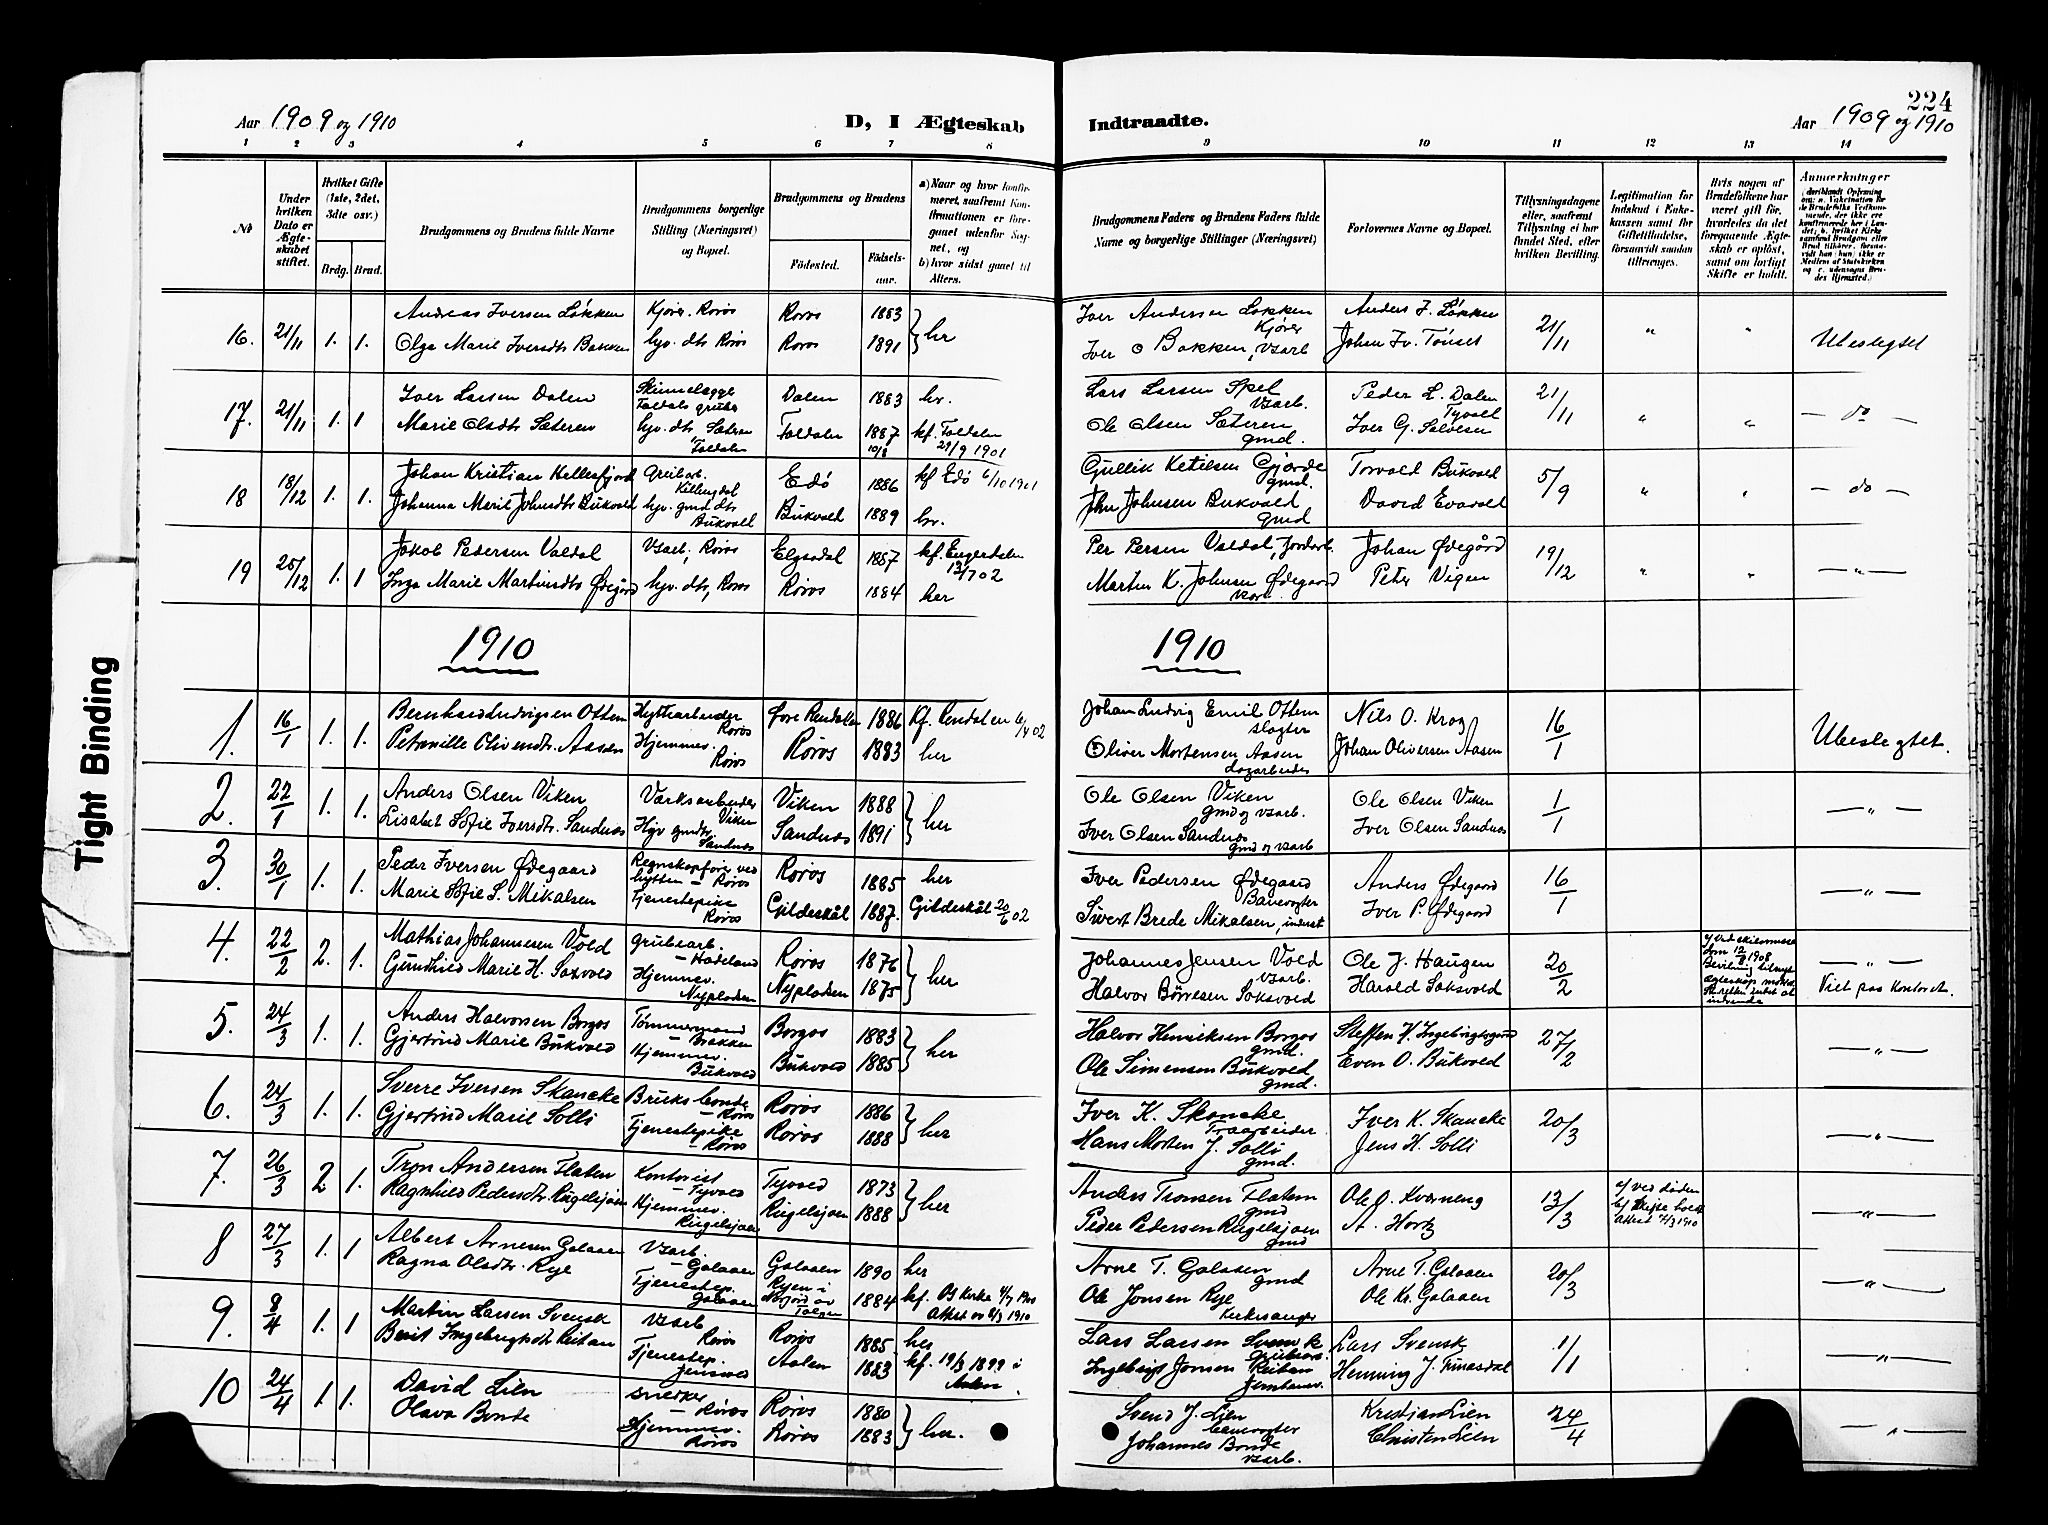 224
Aar 1909 og 1910
D, I Ægteskab
Indtraadte.
Aar 1909 og 1910
1 2 3 4 5 6 7 8 9 10 11 12 13 14
No
Under hvilken Dato er Ægteskabet stiftet.
Hvilket Gifte (1ste, 2det, 3dte osv.)
Brdg. Brud.
Brudgommens og Brudens fulde Navne
Brudgommens borgerlige Stilling (Næringsvei) og Bopæl.
Brudgommens og Brudens
Fødested.
Fødselsaar.
a) Naar og hvor konfirmeret, saafremt Konfirmationen er foregaaet udenfor Sognet, og
b) hvor sidst gaaet til Alters.
Brudgommens Faders og Brudens Faders fulde Navne og borgerlige Stillinger (Næringsvei)
Forlovernes Navne og Bopæl.
Tillysningsdagene eller, saafremt Tillysning ei har fundet Sted, efter hvilken Bevilling.
Legitimation for Indskud i Enkekassen samt for Giftetilladelse, forsaavidt saadan tiltrænges.
Hvis nogen af Brudefolkene har været gift før, hvorledes da det foregaaende Ægteskab er opløst, samt om lovligt Skifte er holdt.
Anmærkninger
16. 21/11 1. 1. Andreas Iversen Løkken Kjører. Røros Røros 1883 } her Iver Andersen Løkken Kjører Anders J. Løkken 21/11 " " Ubeslegtet
Olga Marie Iversdtr Bakken hjv. dtr Røros Røros 1891 Iver O Bakken, vsarb Johan Iv. Tønset
17. 21/11 1. 1 Iver Larsen Dalen Foldals gruber Dalen 1883 hr. Lars Larsen Spel Vsarb. Peder L. Dalen Tyvold 21/11 " " — do —
Marie Olsdtr Sæteren hjv. dtr Sæteren, Foldalen Foldalen 1887 10/8 kf. Foldalen 29/9 1901 Ole Olsen Sæteren gmd. Iver G. Salvesen
18 18/12 1. 1. Johan Kristian Kellesfjord Grubarb. Killingdal Edö 1886 kf Edö 6/10 1901 Gullik Ketilsen Gjørde gmd. Torvald Bukvold 5/9 " " — do —
Johanna Marit Johnsdtr Bukvold hjv. gmd dtr Bukvold Bukvold 1889 hr. John Johnsen Bukvold gmd Evavold
19 25/12 1. 1 Jakob Pedersen Valdal Vsarb; Røros Elgaadal 1887 kf. Engerdalen 13/7 02 Per Persen Valdal, Jordarb. Johan Ødegård 19/12 " " — " —
Inga Marie Martinsdtr Ødegård hjv. dtr, Røros Røros 1884 her Martin K. Johnsen Ødegaard vsarb. Peter Vigen
1910
1910
1. 16/1 1. 1. Bernhard Ludvigsen Ottem Hyttearbeider Røros Øvre Rendalen 1886 Kf. Rendalen 6/4 02 Johan Ludvig Emil Ottem slagter Nils O. Krog 16/1 Ubeslegtet.
Petronille Olivendtr. Aasen Hjemmev. Røros Røros 1883 her Oliver Mortensen Aasen dagarbeider Johan Oliversen Aasen
2. 22/1 1. 1. Anders Olsen Viken Værksarbeider Viken Viken 1888 } her Ole Olsen Viken gmd og vsarb. Ole Olsen Viken 1/1 — " —
Lisabet Sofie Iversdtr. Sandnes Hjv gmdtr. Sandnes Sandnes 1891 Iver Olsen Sandnes gmd og vsarb Iver Olsen Sandnes
3. 30/1 1. 1. Peder Iversen Ødegaard Regnskapsfører ved hytten — Røros Røros 1885 her Iver Pedersen Ødegaard Banevogter Anders Ødegaard 16/1 — " —
Marie Sofie S. Mikalsen Tjenestepike Røros Gildeskål 1887. Gildeskål 20/6 02 Sivert Brede Mikalsen, inderst Iver P. Ødegaard
4. 22/2 2. 1. Mathias Johannesen Vold Grubearb. — Hadeland Røros 1876 } her Johannes Jensen Vold vsarb. Ole J. Haugen 20/2 — " —
Gunhild Marie H. Soxvold Hjemmev. Nypladsen Nypladsen 1875 Halvor Børresen Soksvold Harald Soksvold Viet paa kontoret.
5. 24/3 1. 1. Anders Halvorsen Borgos Tømmermand — Brækken Borgos 1883 } her Halvor Henriksen Borgos gmd. Steffen H. Ingebrigtsgaard 27/2 — " —
Gjertrud Marie Bukvold Hjemmev. Bukvold Bukvold 1885 Ole Simensen Bukvold gmd. Even O. Bukvold
6. 24/3 1. 1. Sverre Iversen Skancke Bruksbonde — Røros Røros 1886 } her Iver K. Skancke Træarbeider Iver K. Skancke 20/3 — " —
Gjertrud Marie Solli Tjenestepike — Røros Røros 1888 Hans Morten J. Solli gmd. Jens H. Solli
7. 26/3 2 1. Tron Andersen Flaten Kontorist — Tyvold Tyvold 1873 } her Anders Tronsen Flaten gmd Ole O. Kværneng 13/3 a/ ved døden b/ skifte holdt Attest 7/3 1910 — " —
Ragnhild Pedersdtr. Rugelsjøen Hjemmev. Rugelsjøen Rugelsjøen 1888 Peder Pedersen Rugelsjøen gmd A. Hortz
8 27/3 1. 1 Albert Arnesen Galaaen Vsarb. — Galaaen Galaaen 1890 her Arne T. Galaaen gmd Arne T. Galaaen 20/3 — " —
Ragna Olsdtr. Rye Tjenestep. Galaaen 1884 Ole Jonsen Rye Kirkesanger Ole Kr. Galaaen
9. 8/4 1. 1 Martin Larsen Svensk Vsarb Røros Røros 1885. her Lars Larsen Svensk Grubearb. Lars Svensk 1/1 — " —
Berit Ingebrigtsdtr Reitan Tjenestep. Jensvold Aalen 1883 kf. 19/3 1899 i Aalen. Ingebrigt Jonsen Reitan Jernbanev. Henning J.
10 24/4 1. 1. David Lien snedker — Røros Røros 1880 } her. Svend J. Lien banevogter Kristian Lien 24/4 — " —
Olava Bonde Hjemmev. Røros Røros 1883 Johannes Bonde vsarb. Christen Lien
Tight Binding